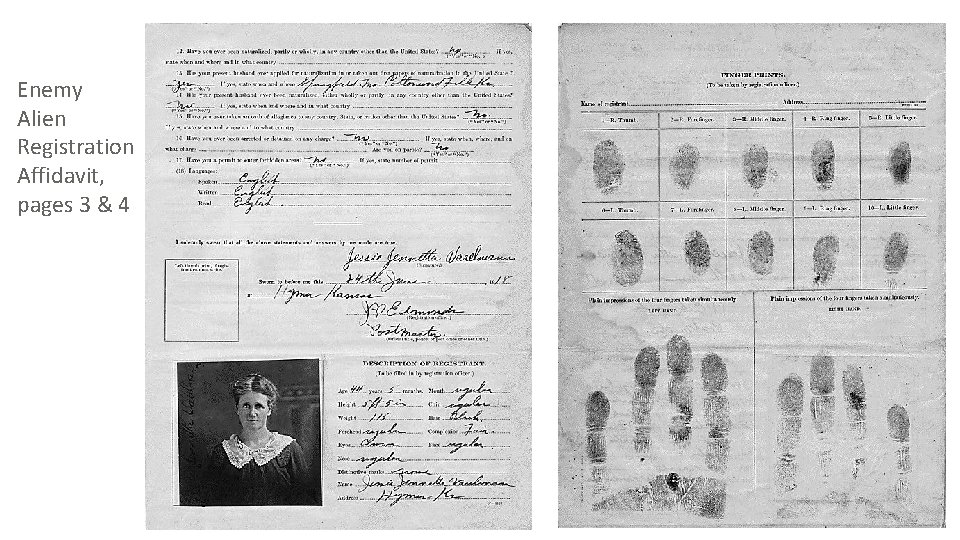 Enemy
Alien
Registration
Affidavit,
pages 3 & 4
12. Have you ever been naturalized, partly or wholly, in any country other than the United States? No If yes,
state when and where and in what country
Yes If yes, state when and where
14. Has your present husband ever been naturalized, either wholly or partly, in any country other than the United States?
No If yes, state when and where and in what country
15. Have you ever taken an oath of allegiance to any country, State, or nation other than the United States? No
If yes, state when and where and to what country
16. Have you ever been arrested or detained on any charge? No If yes, state when, where, and on
what charge Are you on parole? No
17. Have you a permit to enter forbidden areas? No If yes, state number of permit
(18) Languages:
Spoken English
Written English
Read English
I solemnly swear that all the above statements and answers by me made are true.
Jessie Jennetta
Sworn to before me this 24th June 1918
Hymer Kansas
Edmonds
(Registration officer.)
Post Master
DESCRIPTION OF REGISTRANT.
(To be filled in by registration officer.)
Age 44 years 5 months. Mouth regular
Height 5 ft 5 in Chin regular
Weight 115 Hair
Forehead regular Complexion Fair
Eyes Face regular
Nose regular
Distinctive marks none
Name Jessie Jennette
Address Hymer
FINGER PRINTS.
(To be taken by registration officer.)
Name of registrant Address
1—R. Thumb. 2—R. Forefinger. 3—R. Middle finger. 4—R. Ring finger. 5—R. Little finger.
6—L. Thumb. 7—L. Forefinger. 8—L. Middle finger. 9—L. Ring finger. 10—L. Little finger.
Plain impressions of the four fingers taken simultaneously Plain impressions of the four fingers taken simultaneously.
LEFT HAND. RIGHT HAND.